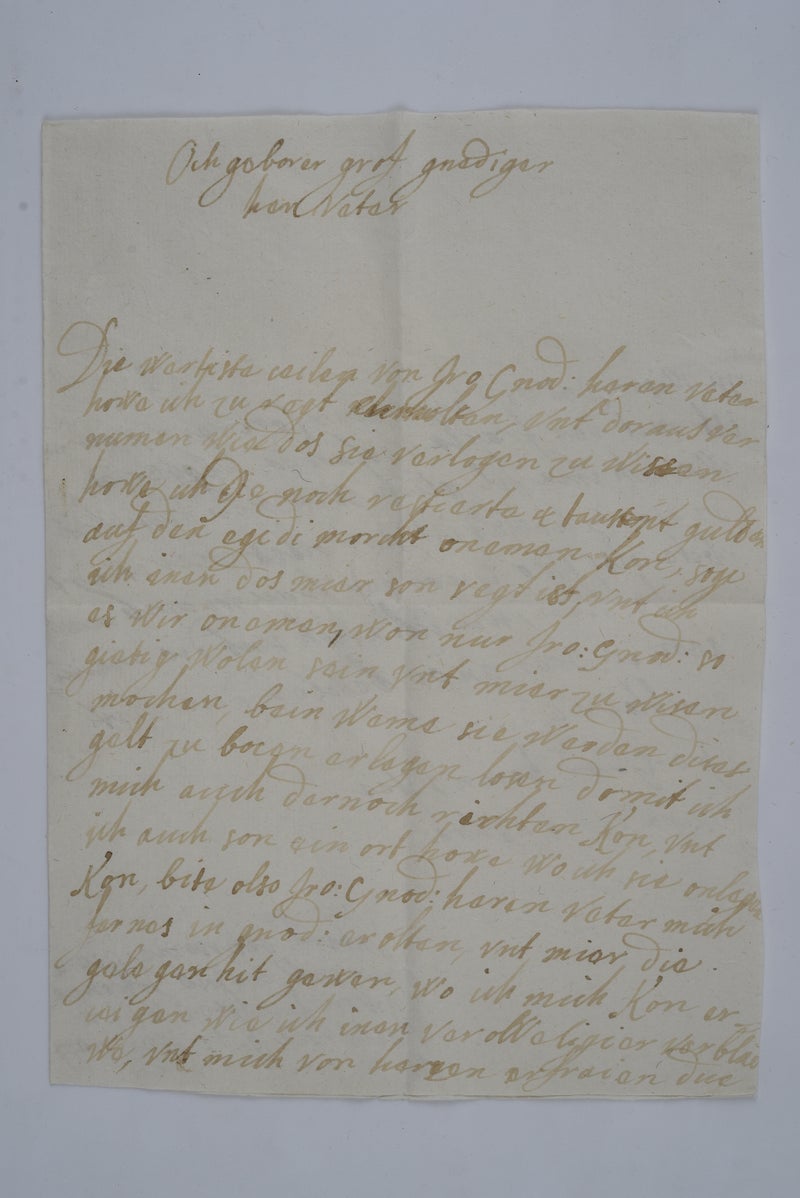 Och geborer grof gnediger
her Vater
Die werteste ceilen von Jro Gnod: heren Vater
howe ich zu regt erholten, vnt doraus ver
numen wie dos sie verlogen zu wissen
howe ich die noch restierte tausent gulden
auf den egidi morckt onemen Kon, soge
ich inen dos mier son regt ist, vnt ich
es wir onemen, won nur Jro: Gnod: so
gietig wolen sein vnt mier zu wisen
mochen, bein weme sie werden dises
gelt zu bocen erlegen losen domit ich
mich auch dernoch richten Kon, vnt
ich auch son ein ort howe wo ich sie onlegen
Kon, bite olso Jro: Gnod: heren Vater mich
fernes in gnod: erolten, vnt mier die
gelegenhit gewen, wo ich mich Kon er
ceigen wie ich inen verowligier verblei
we, vnt mich von hercen erfreien due